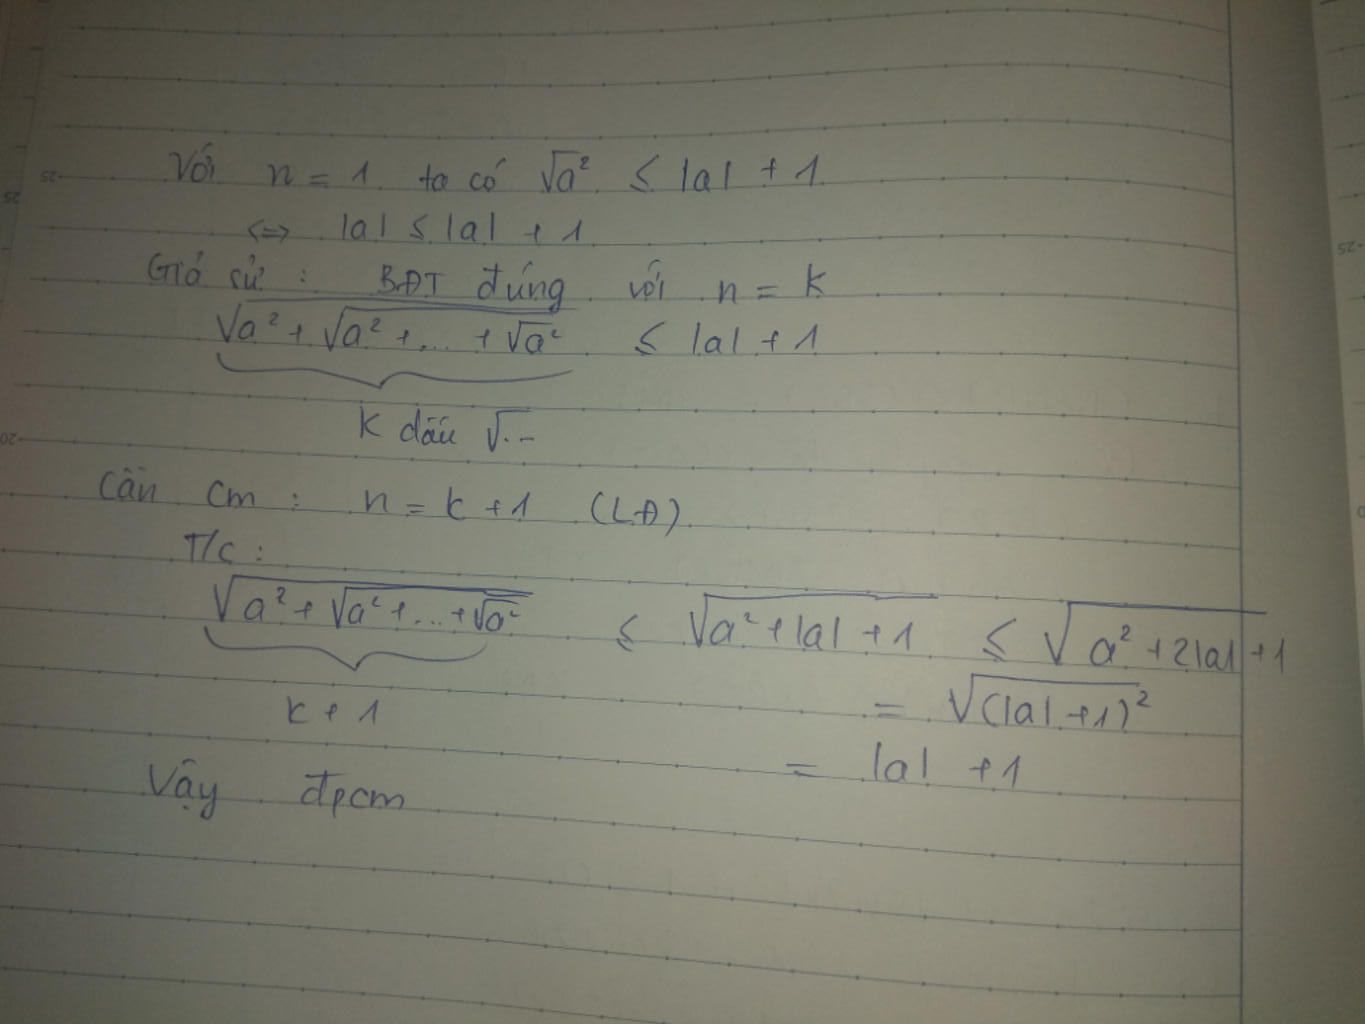 Với n = 1 ta có √a² ≤ |a| + 1
⇔ |a| ≤ |a| + 1
Giả sử : BĐT đúng với n = k
√a² + √a² + ... + √a² ≤ |a| + 1
k dấu √...
Cần cm : n = k + 1 (LĐ)
T/c :
√a² + √a² + ... + √a² ≤ √a² + |a| + 1 ≤ √a² + 2|a| + 1
k + 1
= √(|a| + 1)²
= |a| + 1
Vậy đpcm
25
25
20
25